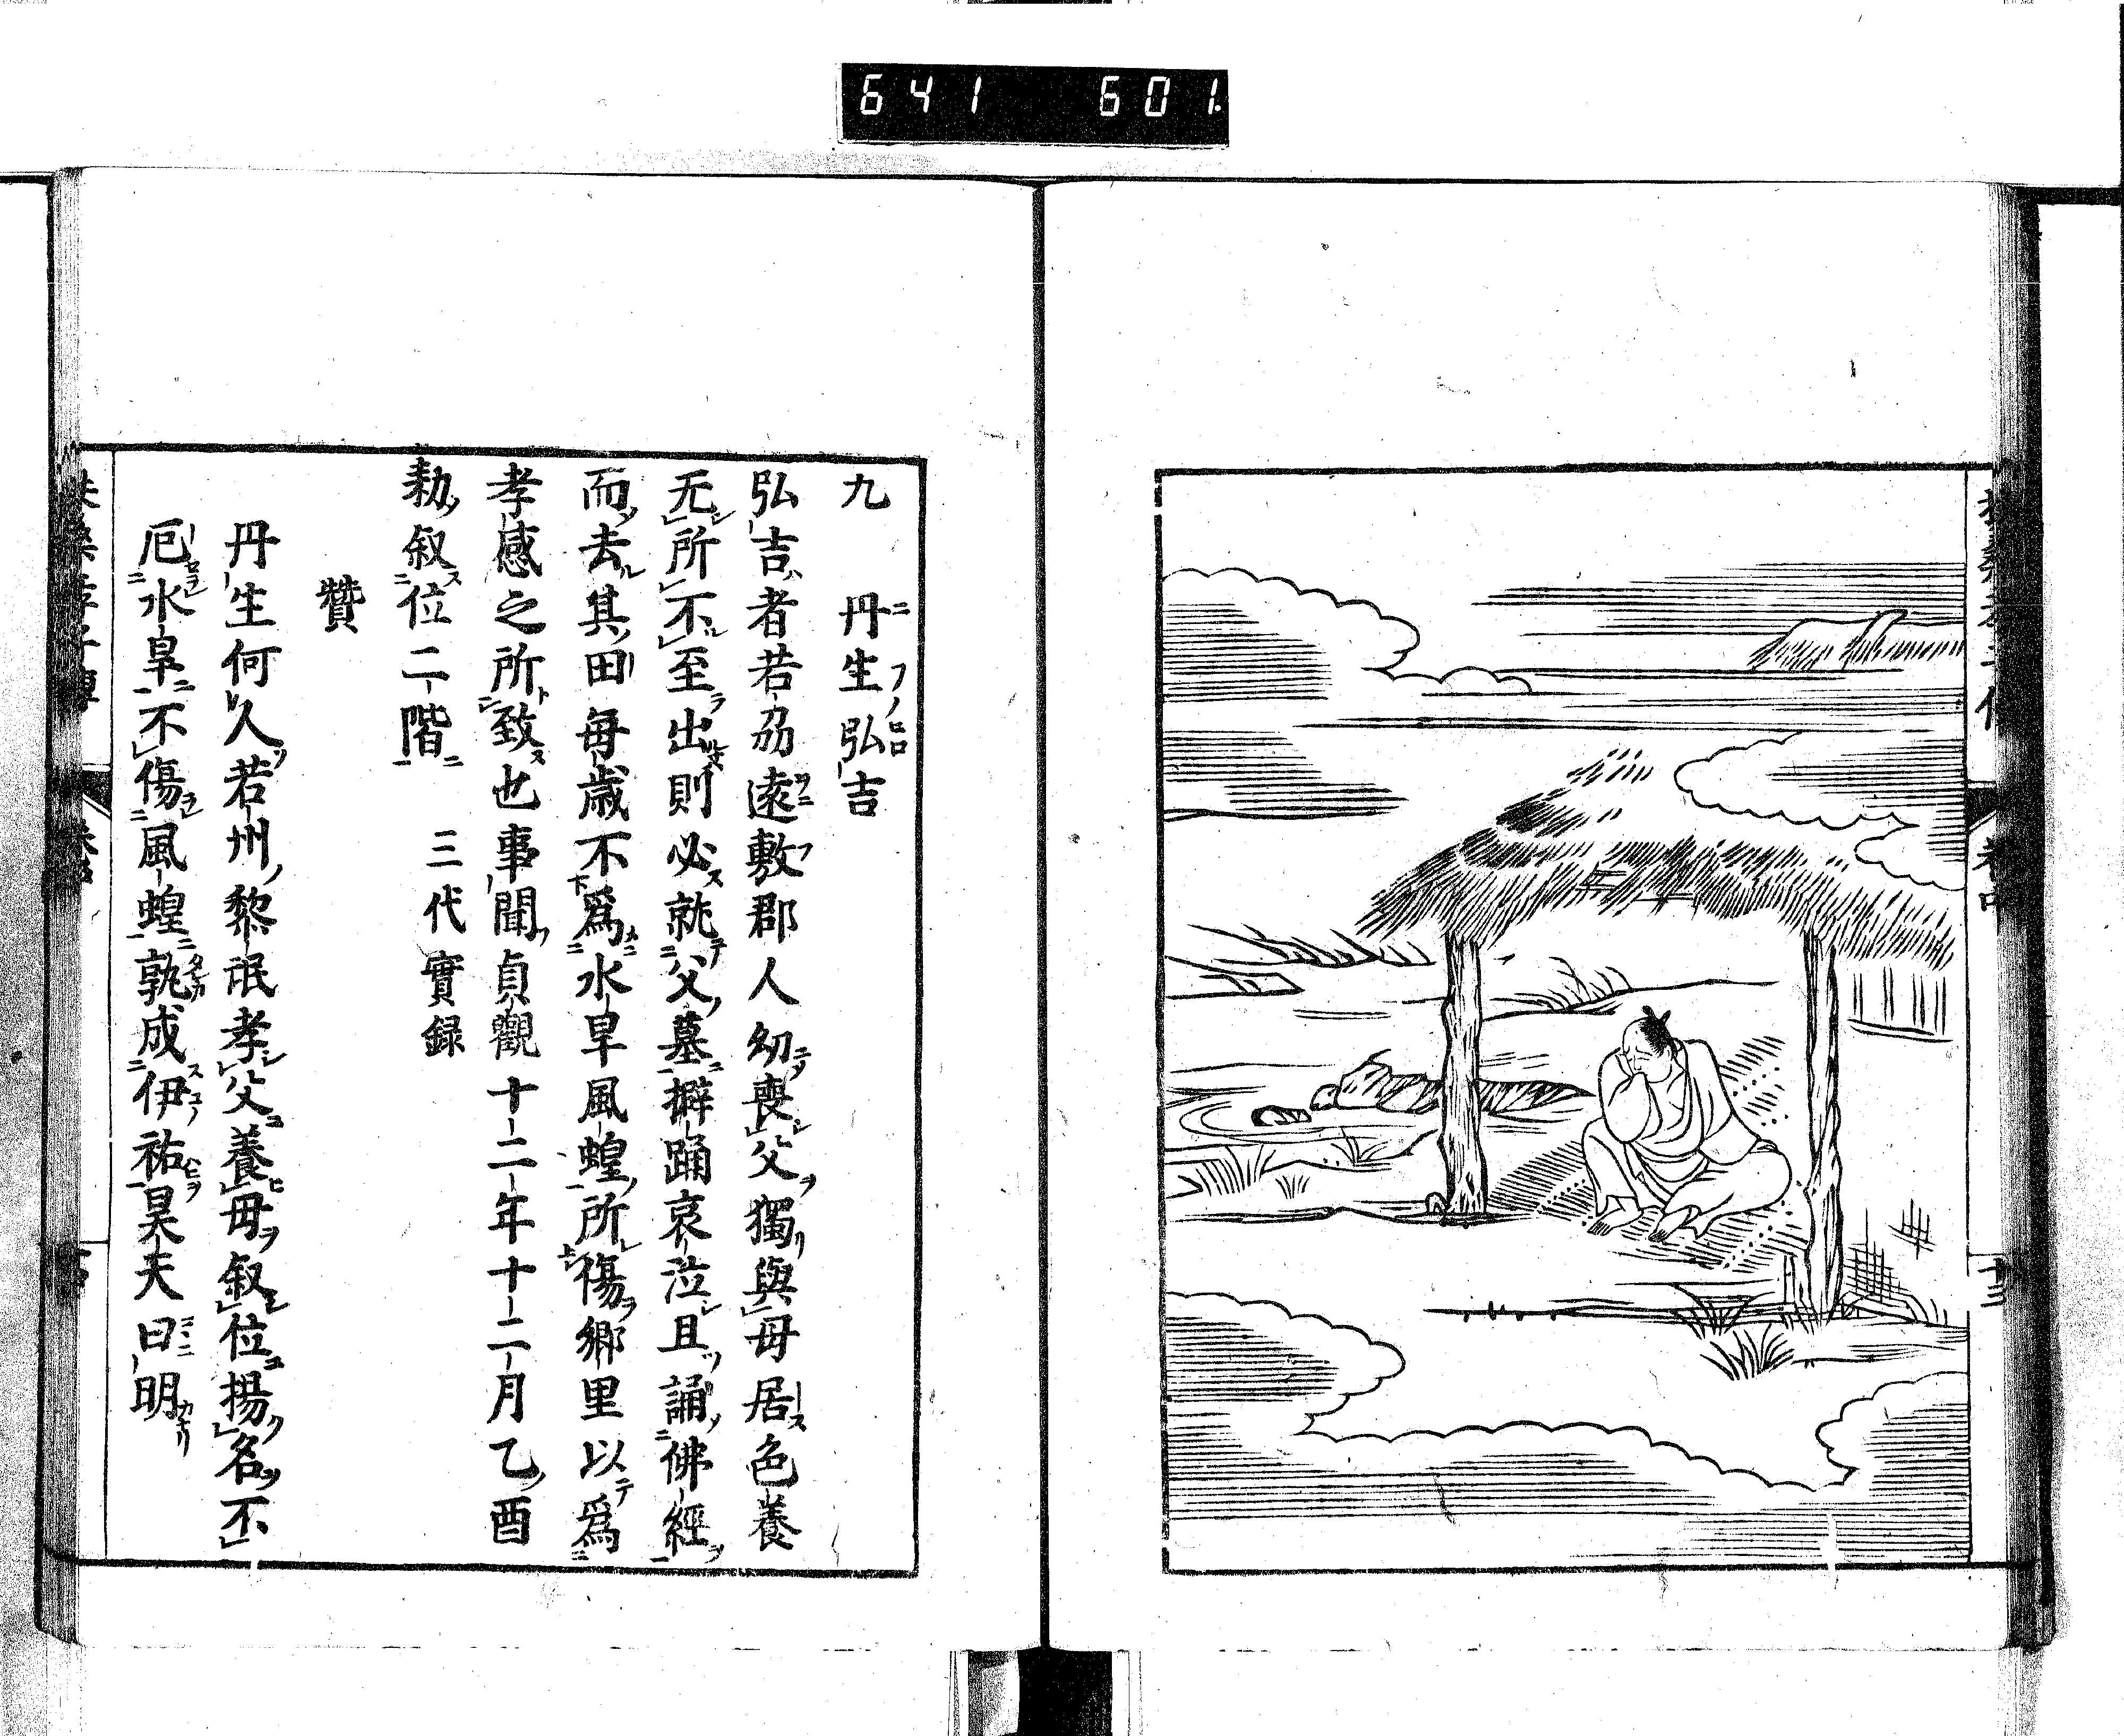 641 601.
九 丹生弘吉
弘吉者若刕遠敷郡人幼喪父獨與母居色養
无所不至出則必就父墓擗踊哀泣且誦佛經
而去其田毎歳不爲水旱風蝗所傷郷里以爲
孝感之所致也事聞貞觀十二年十二月乙酉
勑叙位二階 三代實録
贊
丹生何久若州黎氓孝父養母叙位揚名不
厄水旱不傷風蝗孰成伊祐昊天曰明